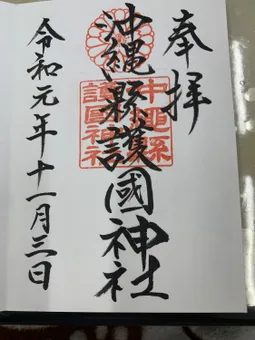 奉拝
沖縄縣護國神社
令和元年十一月三日
沖繩縣
護國神社